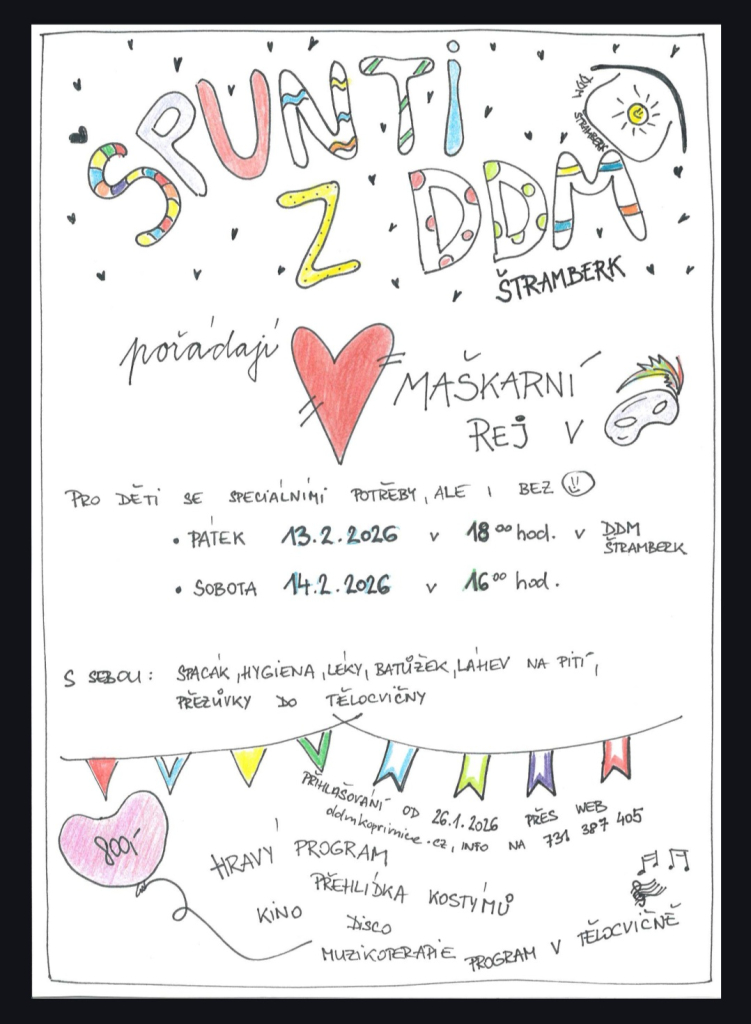 SPUNTI
Z DDM
DDM
ŠTRAMBERK
ŠTRAMBERK
pořádají
MAŠKARNÍ
REJ V
PRO DĚTI SE SPECIÁLNÍMI POTŘEBY, ALE I BEZ
• PÁTEK 13.2.2026 v 18⁰⁰ hod. v DDM
ŠTRAMBERK
• SOBOTA 14.2.2026 v 16⁰⁰ hod.
S SEBOU: SPACÁK, HYGIENA, LÉKY, BATŮŽEK, LÁHEV NA PITÍ,
PŘEZŮVKY DO TĚLOCVIČNY
PŘIHLAŠOVÁNÍ OD 26.1.2026 PŘES WEB
ddmkoprivnice.cz, INFO NA 731 387 405
HRAVÝ PROGRAM
PŘEHLÍDKA KOSTÝMŮ
KINO
DISCO
MUZIKOTERAPIE PROGRAM V TĚLOCVIČNĚ